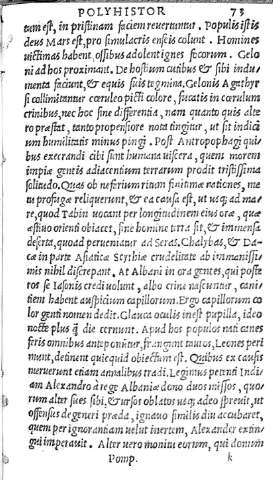 POLYHISTOR 73
tum est, in pristinam faciem revertuntur. Populis istis
deus Mars est, pro simulacris enses colunt. Homines
victimas habent, ossibus adolent ignes focorum. Gelo
ni ad hos proximant. De hostium cutibus & sibi indu
menta faciunt, & equis suis tegmina. Gelonis Agathyr
si collimitantur cœruleo picti colore, fucatis in cœrulum
crinibus, nec hoc sine differentia, nam quanto quis alte
ro præstat, tanto propensiore nota tingitur, ut sit indici
um humilitatis minus pingi. Post Antropophagi qui
bus execrandi cibi sunt humana viscera, quem morem
impiæ gentis adiacentium terrarum prodit tristissima
solitudo. Quas ob nefarium ritum finitimæ nationes, me
tu profugæ reliquerunt, & ea causa est, ut usq; ad ma=
re, quod Tabin vocant per longitudinem eius oræ, quæ
æstivo orienti obiacet, sine homine terra sit, & immensa
deserta, quoad perveniatur ad Seras. Chalybas, & Da=
cæ in parte Asiaticæ Scythiæ crudelitate ab immanissi=
mis nihil discrepant. At Albani in ora gentes, qui poste
ros se Iasonis credi volunt, albo crine nascuntur, cani=
tiem habent auspicium capillorum. Ergo capillorum co
lor genti nomen dedit. Glauca oculis inest pupilla, ideo
nocte plus q̃ die cernunt. Apud hos populos nati canes
feris omnibus anteponũtur, frangunt tauros, Leones peri
munt, detinent quicquid obiectum est. Quibus ex causis
meruerunt etiam annalibus tradi. Legimus petenti Indi
am Alexandro à rege Albaniæ dono duos missos, quo=
rum alter sues sibi, & ursos oblatos usq; adeo sprevit, ut
offensus degeneri præda, ignavo similis diu accubaret,
quem per ignorantiam velut inertem, Alexander extin=
gui imperavit. Alter vero monitu eorum, qui donum
Pomp. k